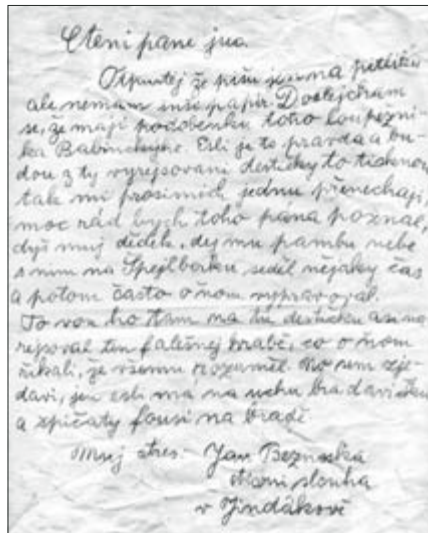 Ctěni pane juo.
Otpuntěj že pišu jen na pitliku
ale nemam inši papir. Doslejcham
se, že maji podobenku toho loupežni-
ka Babinskyho. Esli je to pravda a bu-
dou z ty vyrejsovani destičky to tisknou
tak mi prosimich jednu přenechaji,
moc rád bych toho pána poznal,
dyš muj dědek, dej mu pambu nebe
s nim na Špejlborku seděl nějaky čas
a potom často o ňom vypravoval.
To von ho tam na tu destičku asi na
rejsoval ten falešnej hrabě, co o ňom
řikali, že všemu rozuměl. No sem zje-
davi, jen esli ma na uchu bradavičku
a špičaty fousi na bradě.
Muj adres: Jan Beznoska
slouha
v Jindákově